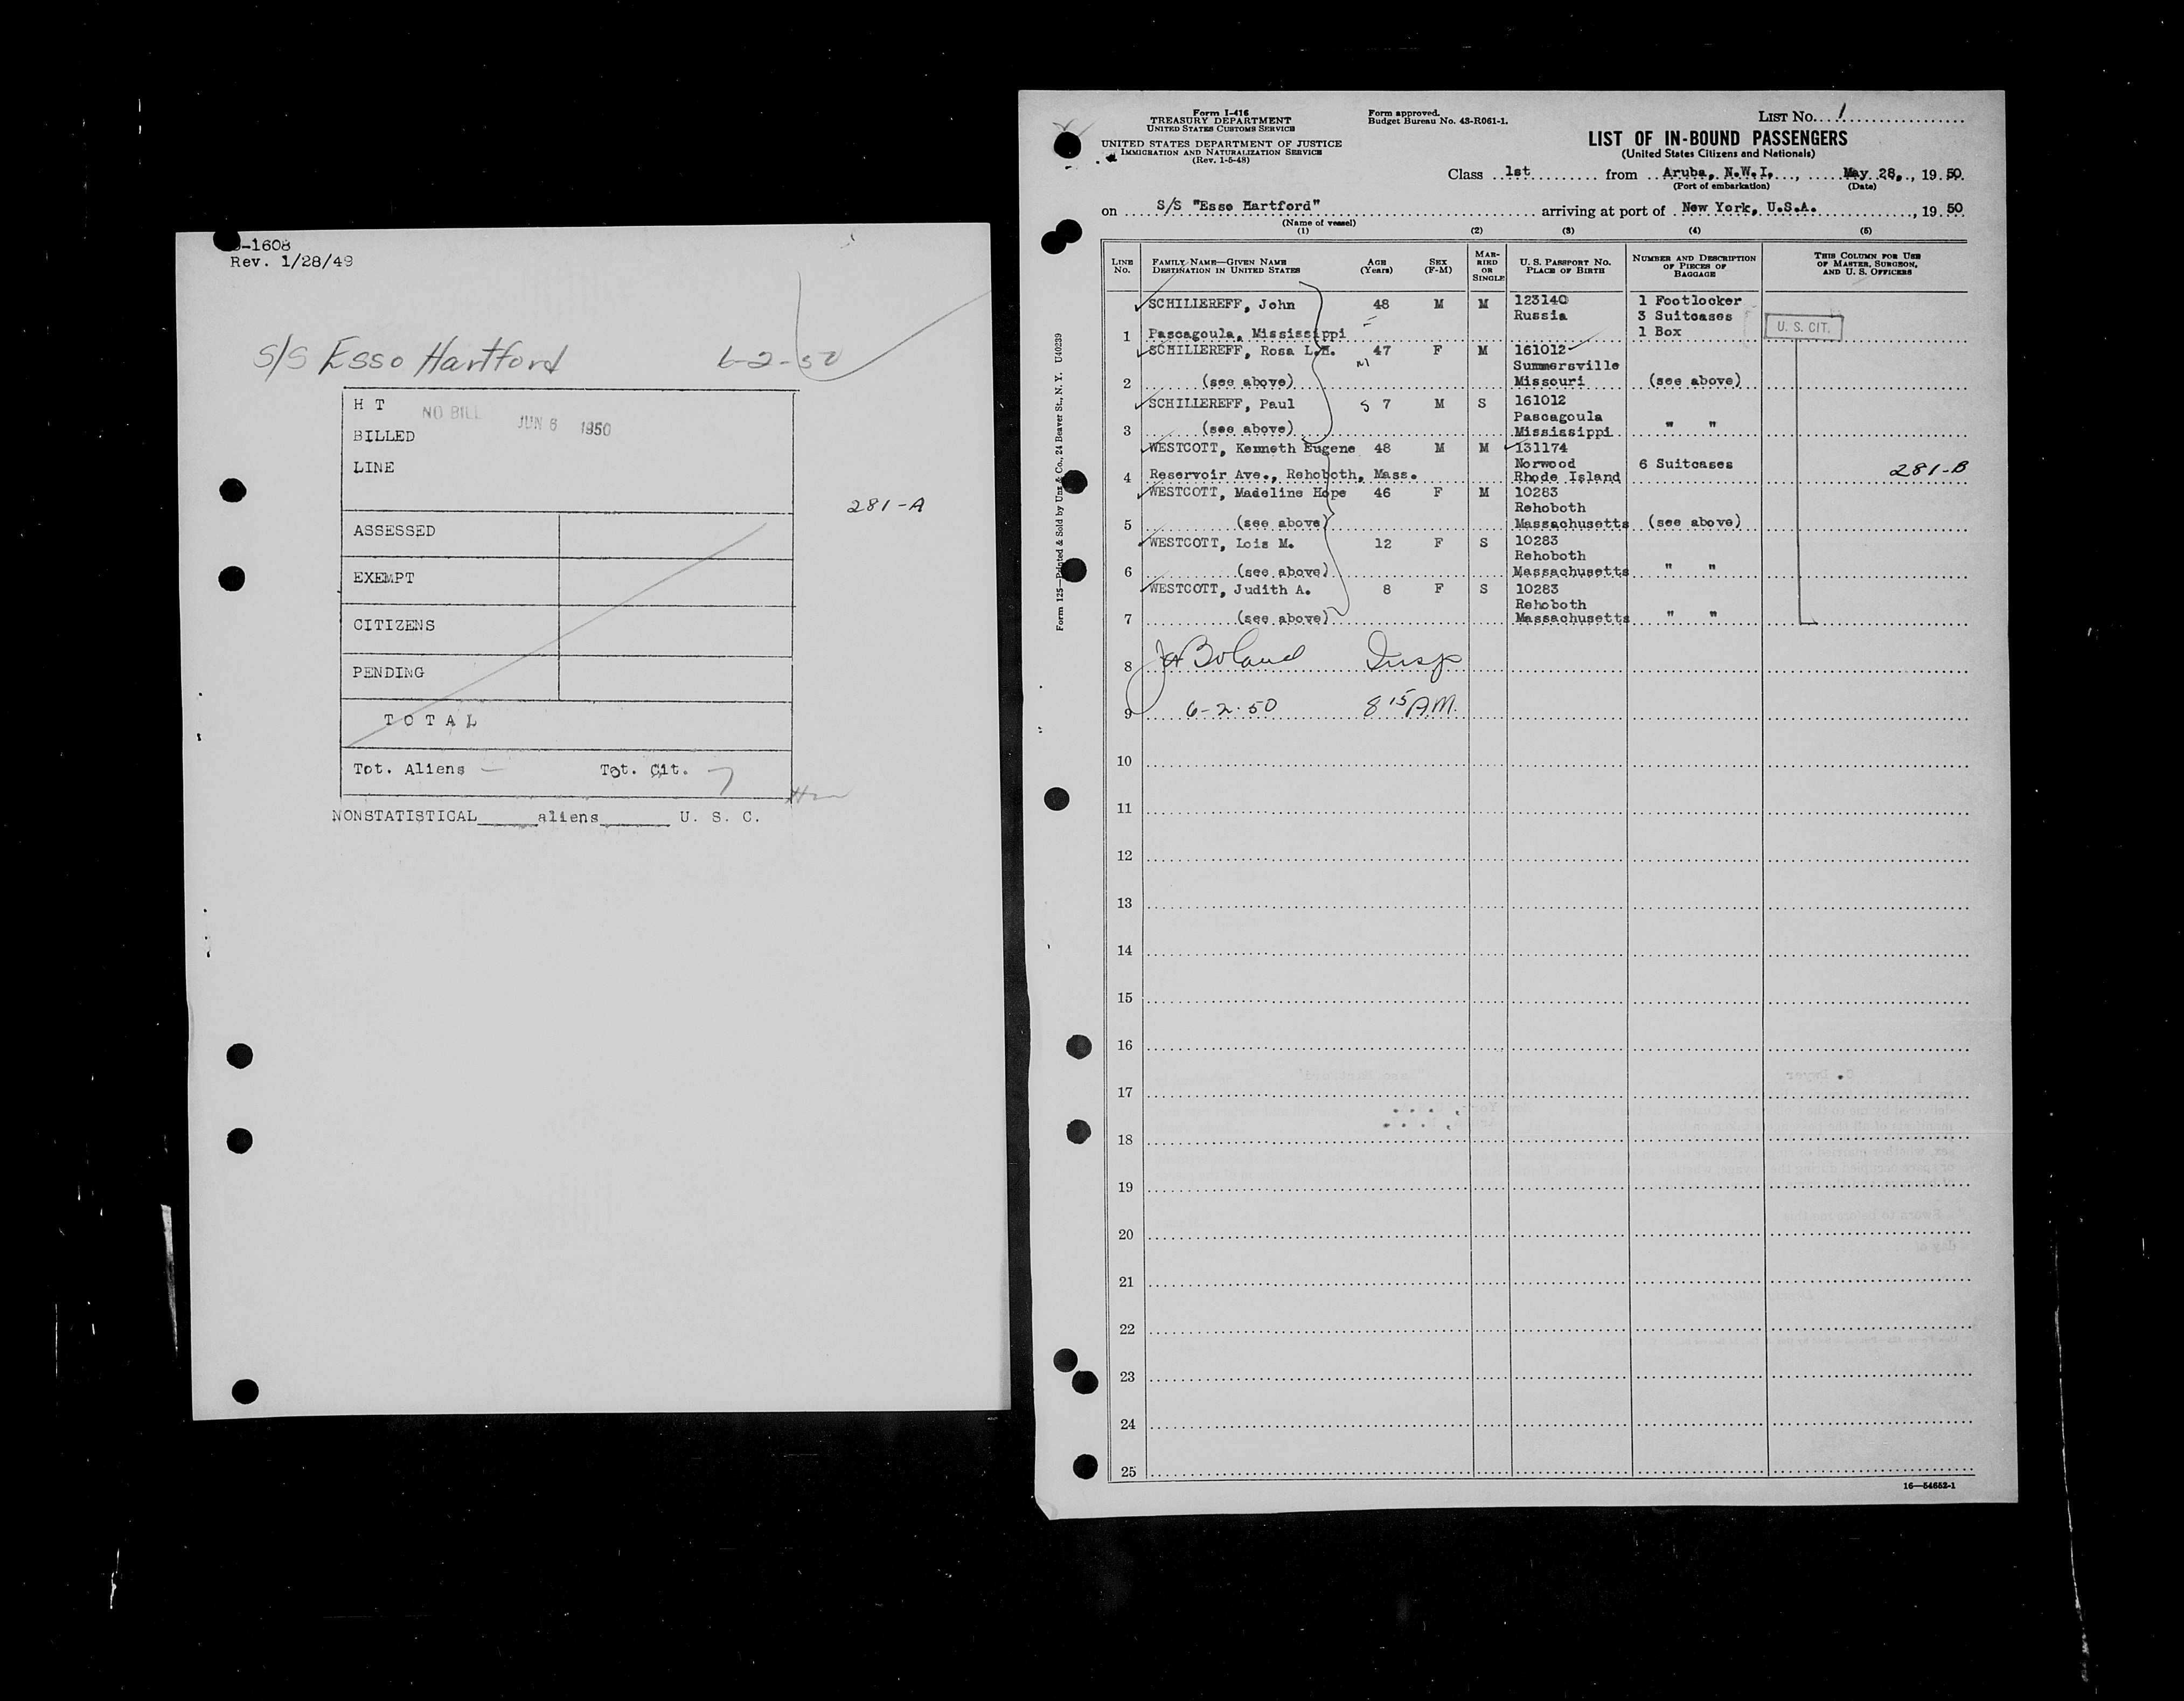 -1608
Rev. 1/28/49
S/S Esso Hartford 6-2-50
H T NO BILL JUN 6 1950
BILLED
LINE
281-A
ASSESSED
EXEMPT
CITIZENS
PENDING
T O T A L
Tot. Aliens — Tot. Cit. 7
NONSTATISTICAL_____aliens______ U. S. C.
Form I-416
TREASURY DEPARTMENT
UNITED STATES CUSTOMS SERVICE
UNITED STATES DEPARTMENT OF JUSTICE
IMMIGRATION AND NATURALIZATION SERVICE
(Rev. 1-5-48)
Form approved.
Budget Bureau No. 43-R061-1.
LIST NO. 1
LIST OF IN-BOUND PASSENGERS
(United States Citizens and Nationals)
Class 1st from Aruba, N.W.I., May 28, 19 50
(Port of embarkation) (Date)
on S/S "Esso Hartford" arriving at port of New York, U.S.A., 19 50
(Name of vessel)
(1) (2) (3) (4) (5)
LINE NO. FAMILY NAME—GIVEN NAME DESTINATION IN UNITED STATES AGE (Years) SEX (F-M) MARRIED OR SINGLE U. S. PASSPORT NO. PLACE OF BIRTH NUMBER AND DESCRIPTION OF PIECES OF BAGGAGE THIS COLUMN FOR USE OF MASTER, SURGEON, AND U. S. OFFICERS
SCHILLEREFF, John 48 M M 123140 1 Footlocker
Russia 3 Suitcases
1 Pascagoula, Mississippi 1 Box U. S. CIT.
SCHILLEREFF, Rosa L.H. 47 F M 161012
Summersville
2 (see above) Missouri (see above)
SCHILLEREFF, Paul S 7 M S 161012
Pascagoula
3 (see above) Mississippi " "
WESTCOTT, Kenneth Eugene 48 M M 131174
Norwood 6 Suitcases 281-B
4 Reservoir Ave., Rehoboth, Mass. Rhode Island
WESTCOTT, Madeline Hope 46 F M 10283
Rehoboth
5 (see above) Massachusetts (see above)
WESTCOTT, Lois M. 12 F S 10283
Rehoboth
6 (see above) Massachusetts " "
WESTCOTT, Judith A. 8 F S 10283
Rehoboth
7 (see above) Massachusetts " "
8 Boland Insp
9 6-2-50 8 15 A.M.
10
11
12
13
14
15
16
17
18
19
20
21
22
23
24
25
16—54652-1
Form 125—Printed & Sold by Unz & Co., 24 Beaver St., N. Y. U40239